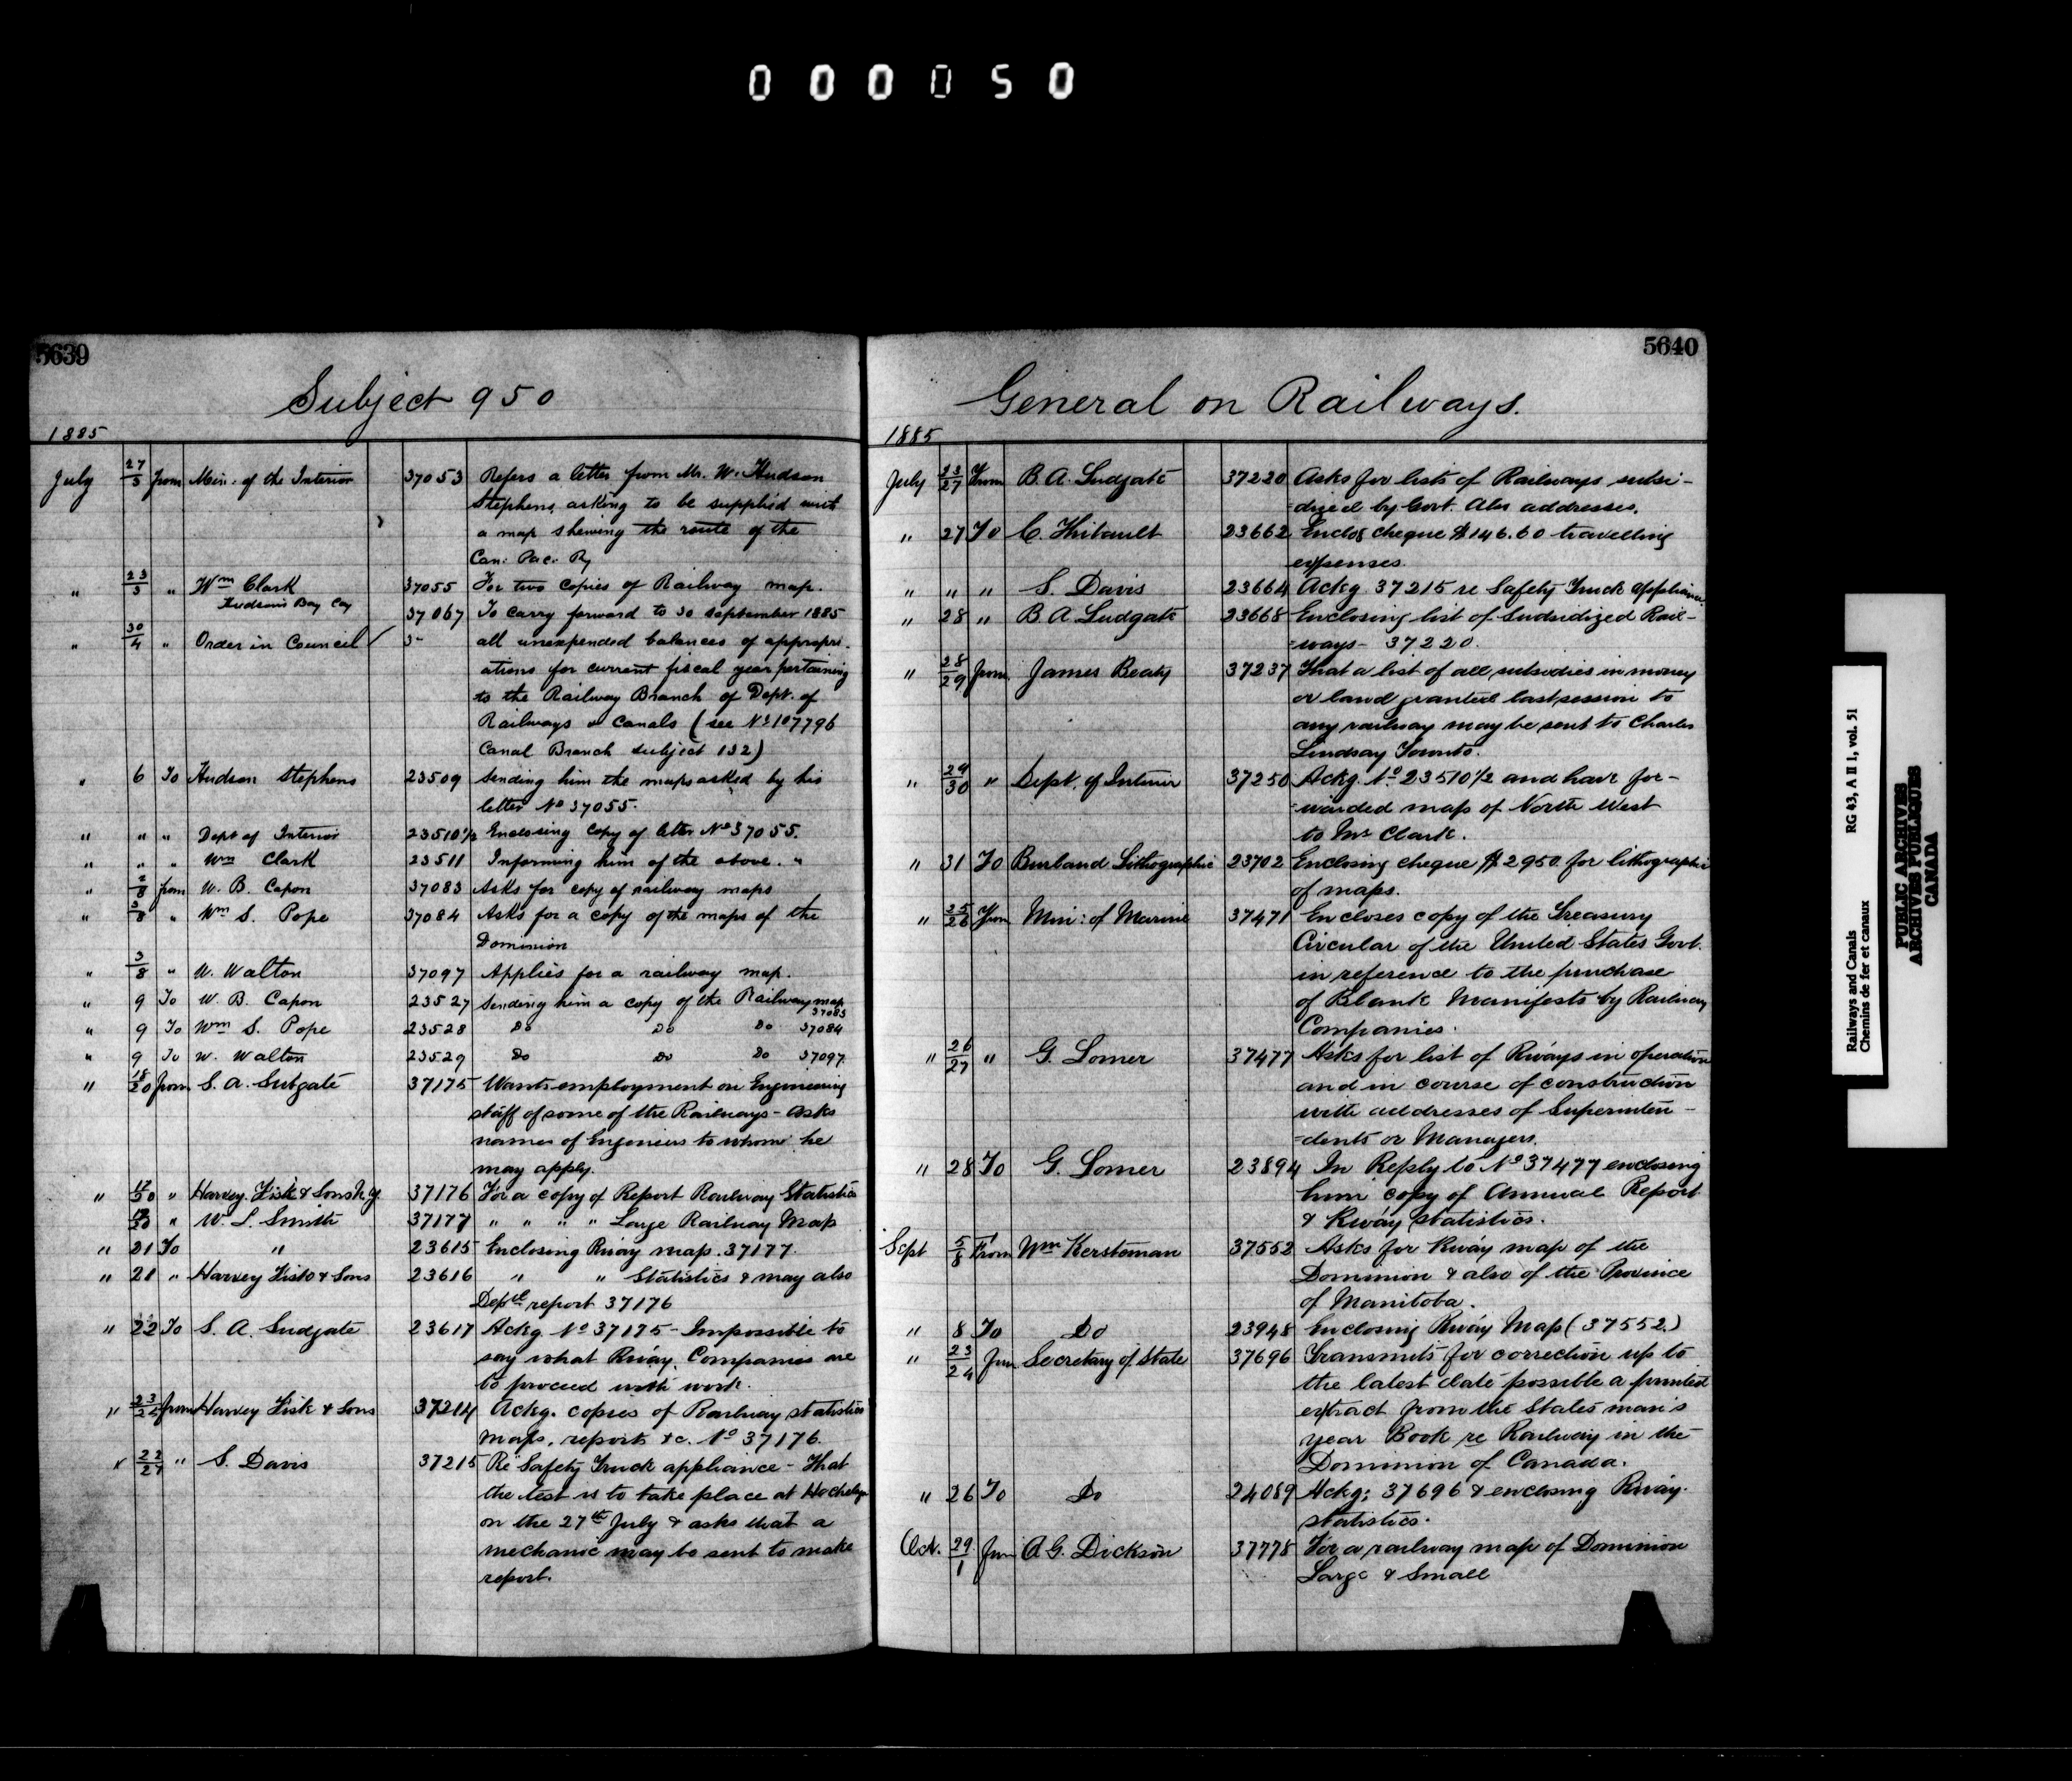 000050
5639
Subject 950
1885
July 27/3 from Min. of the Interior 37053 Refers a letter from Mr. W. Hudson
Stephens, asking to be supplied with
a map shewing the route of the
Can: Pac: Ry
" 23/3 " Wm Clark 37055 For two copies of Railway map.
Hudson's Bay Coy 37067 To carry forward to 30 september 1885
" 30/4 " Order in Council all unexpended balances of appropri-
ations for current fiscal year pertaining
to the Railway Branch of Dept. of
Railways & Canals (see No 107796
Canal Branch subject 132)
" 6 To Hudson Stephens 23509 Sending him the maps asked by his
letter No 37055.
" " " Dept of Interior 23510½ Enclosing copy of letter No 37055.
" " " Wm Clark 23511 Informing him of the above. "
" 2/8 from W. B. Capon 37083 Asks for copy of railway maps
" 3/8 " Wm S. Pope 37084 Asks for a copy of the maps of the
Dominion
" 3/8 " W. Walton 37097 Applies for a railway map.
" 9 To W. B. Capon 23527 Sending him a copy of the Railway map
37083
" 9 To Wm S. Pope 23528 Do Do Do 37084
" 9 To W. Walton 23529 Do Do Do 37097
" 18/20 from S. A. Sutgate 37175 Wants employment on Engineering
staff of some of the Railways - Asks
names of Engineers to whom he
may apply.
" 17/20 " Harvey Fisk & Sons N.Y. 37176 For a copy of Report Railway Statistics
" W. L. Smith 37177 " " " " Large Railway Map
" 21 To " 23615 Enclosing Rway map. 37177.
" 21 " Harvey Fisk & Sons 23616 " " Statistics & may also
Deptl report 37176
" 22 To S. A. Ludgate 23617 Ackg No 37175 - Impossible to
say what Rway. Companies are
to proceed with work.
" from Harvey Fisk & Sons 37214 Ackg. copies of Railway statistics
maps, reports &c. No 37176.
" 22/27 " S. Davis 37215 Re Safety Truck appliance - That
the test is to take place at Hochelaga
on the 27th July & asks that a
mechanic may be sent to make
report.
5640
General on Railways.
1885
July 23/27 From B. A. Ludgate 37220 Asks for lists of Railways subsi-
=dized by Govt. Also addresses.
" 27 To C. Thibault 23662 Enclos cheque $146.60 travelling
expenses.
" " " S. Davis 23664 Ackg. 37215 re Safety Truck appliance.
" 28 " B A Ludgate 23668 Enclosing list of Subsidized Rail-
=ways - 37220.
" 28/29 from James Beaty 37237 That a list of all subsidies in money
or land granted last session to
any railway may be sent to Charles
Lindsay Toronto.
" 29/30 " Dept. of Interior 37250 Ackg. No 23510½ and have for-
=warded map of North West
to Mr Clark.
" 31 To Burland Lithographic 23702 Enclosing cheque $2950 for lithographic
of maps.
" 25/26 From Min: of Marine 37471 Encloses copy of the Treasury
Circular of the United States Govt.
in reference to the purchase
of Blank Manifests by Railway
Companies.
" 26/27 " G. Lomer 37477 Asks for list of Rways in operation
and in course of construction
with addresses of Superinten-
=dents or Managers.
" 28 To G. Lomer 23894 In Reply to No 37477 enclosing
him copy of Annual Report
& Rway statistics.
Sept 5/8 From Wm Kersteman 37552 Asks for Rway map of the
Dominion & also of the Province
of Manitoba.
" 8 To Do 23948 Enclosing Rway Map (37552.)
" 23/24 from Secretary of State 37696 Transmits for correction up to
the latest date possible a printed
extract from the States man's
year Book re Railway in the
Dominion of Canada.
" 26 To Do 24089 Ackg: 37696 & enclosing Rway.
statistics.
Oct. 29/1 from A. G. Dickson 37778 For a railway map of Dominion
Large & Small
Railways and Canals RG 43, A II 1, vol. 51
Chemins de fer et canaux
PUBLIC ARCHIVES
ARCHIVES PUBLIQUES
CANADA